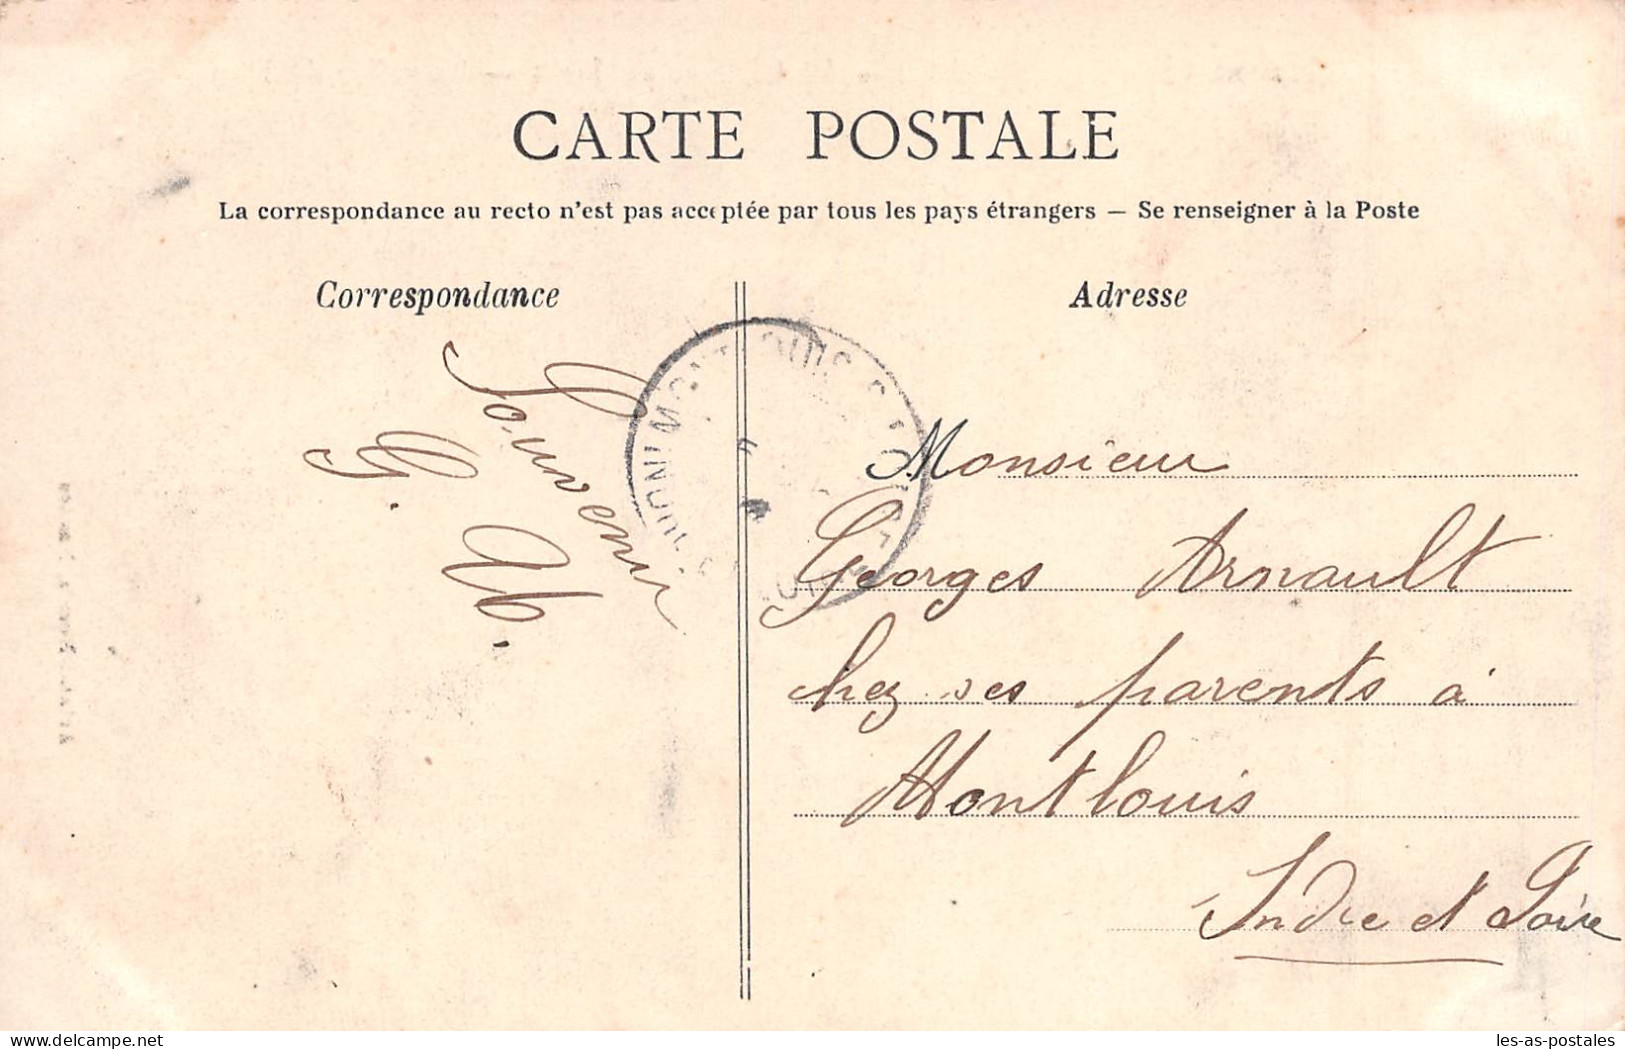 CARTE POSTALE
La correspondance au recto n'est pas acceptée par tous les pays étrangers — Se renseigner à la Poste
Correspondance
Souvenir
G. Ab.
Adresse
Monsieur
Georges Arnault
chez ses parents à
Montlouis
Indre et Loire
delcampe.net
les-as-postales